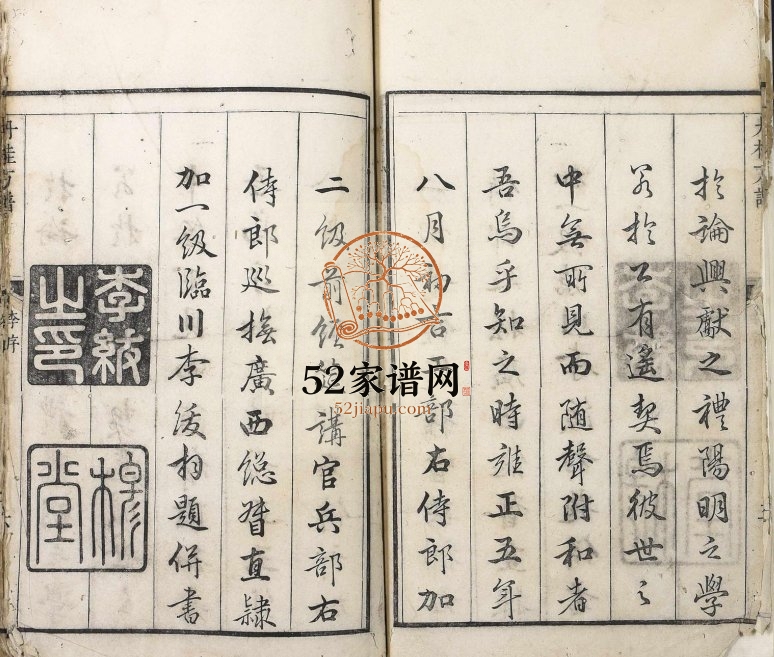 扵論興獻之禮陽明之學
若扵公有遙契焉彼世之
中無所見而随聲附和者
吾烏乎知之時雍正五年
八月初吉工部右侍郎加
二級前經筵講官兵部右
侍郎巡撫廣西總督直隸
加一級臨川李紱拜題併書
李紱之印
穆堂
李序
52家谱网
52jiapu.com